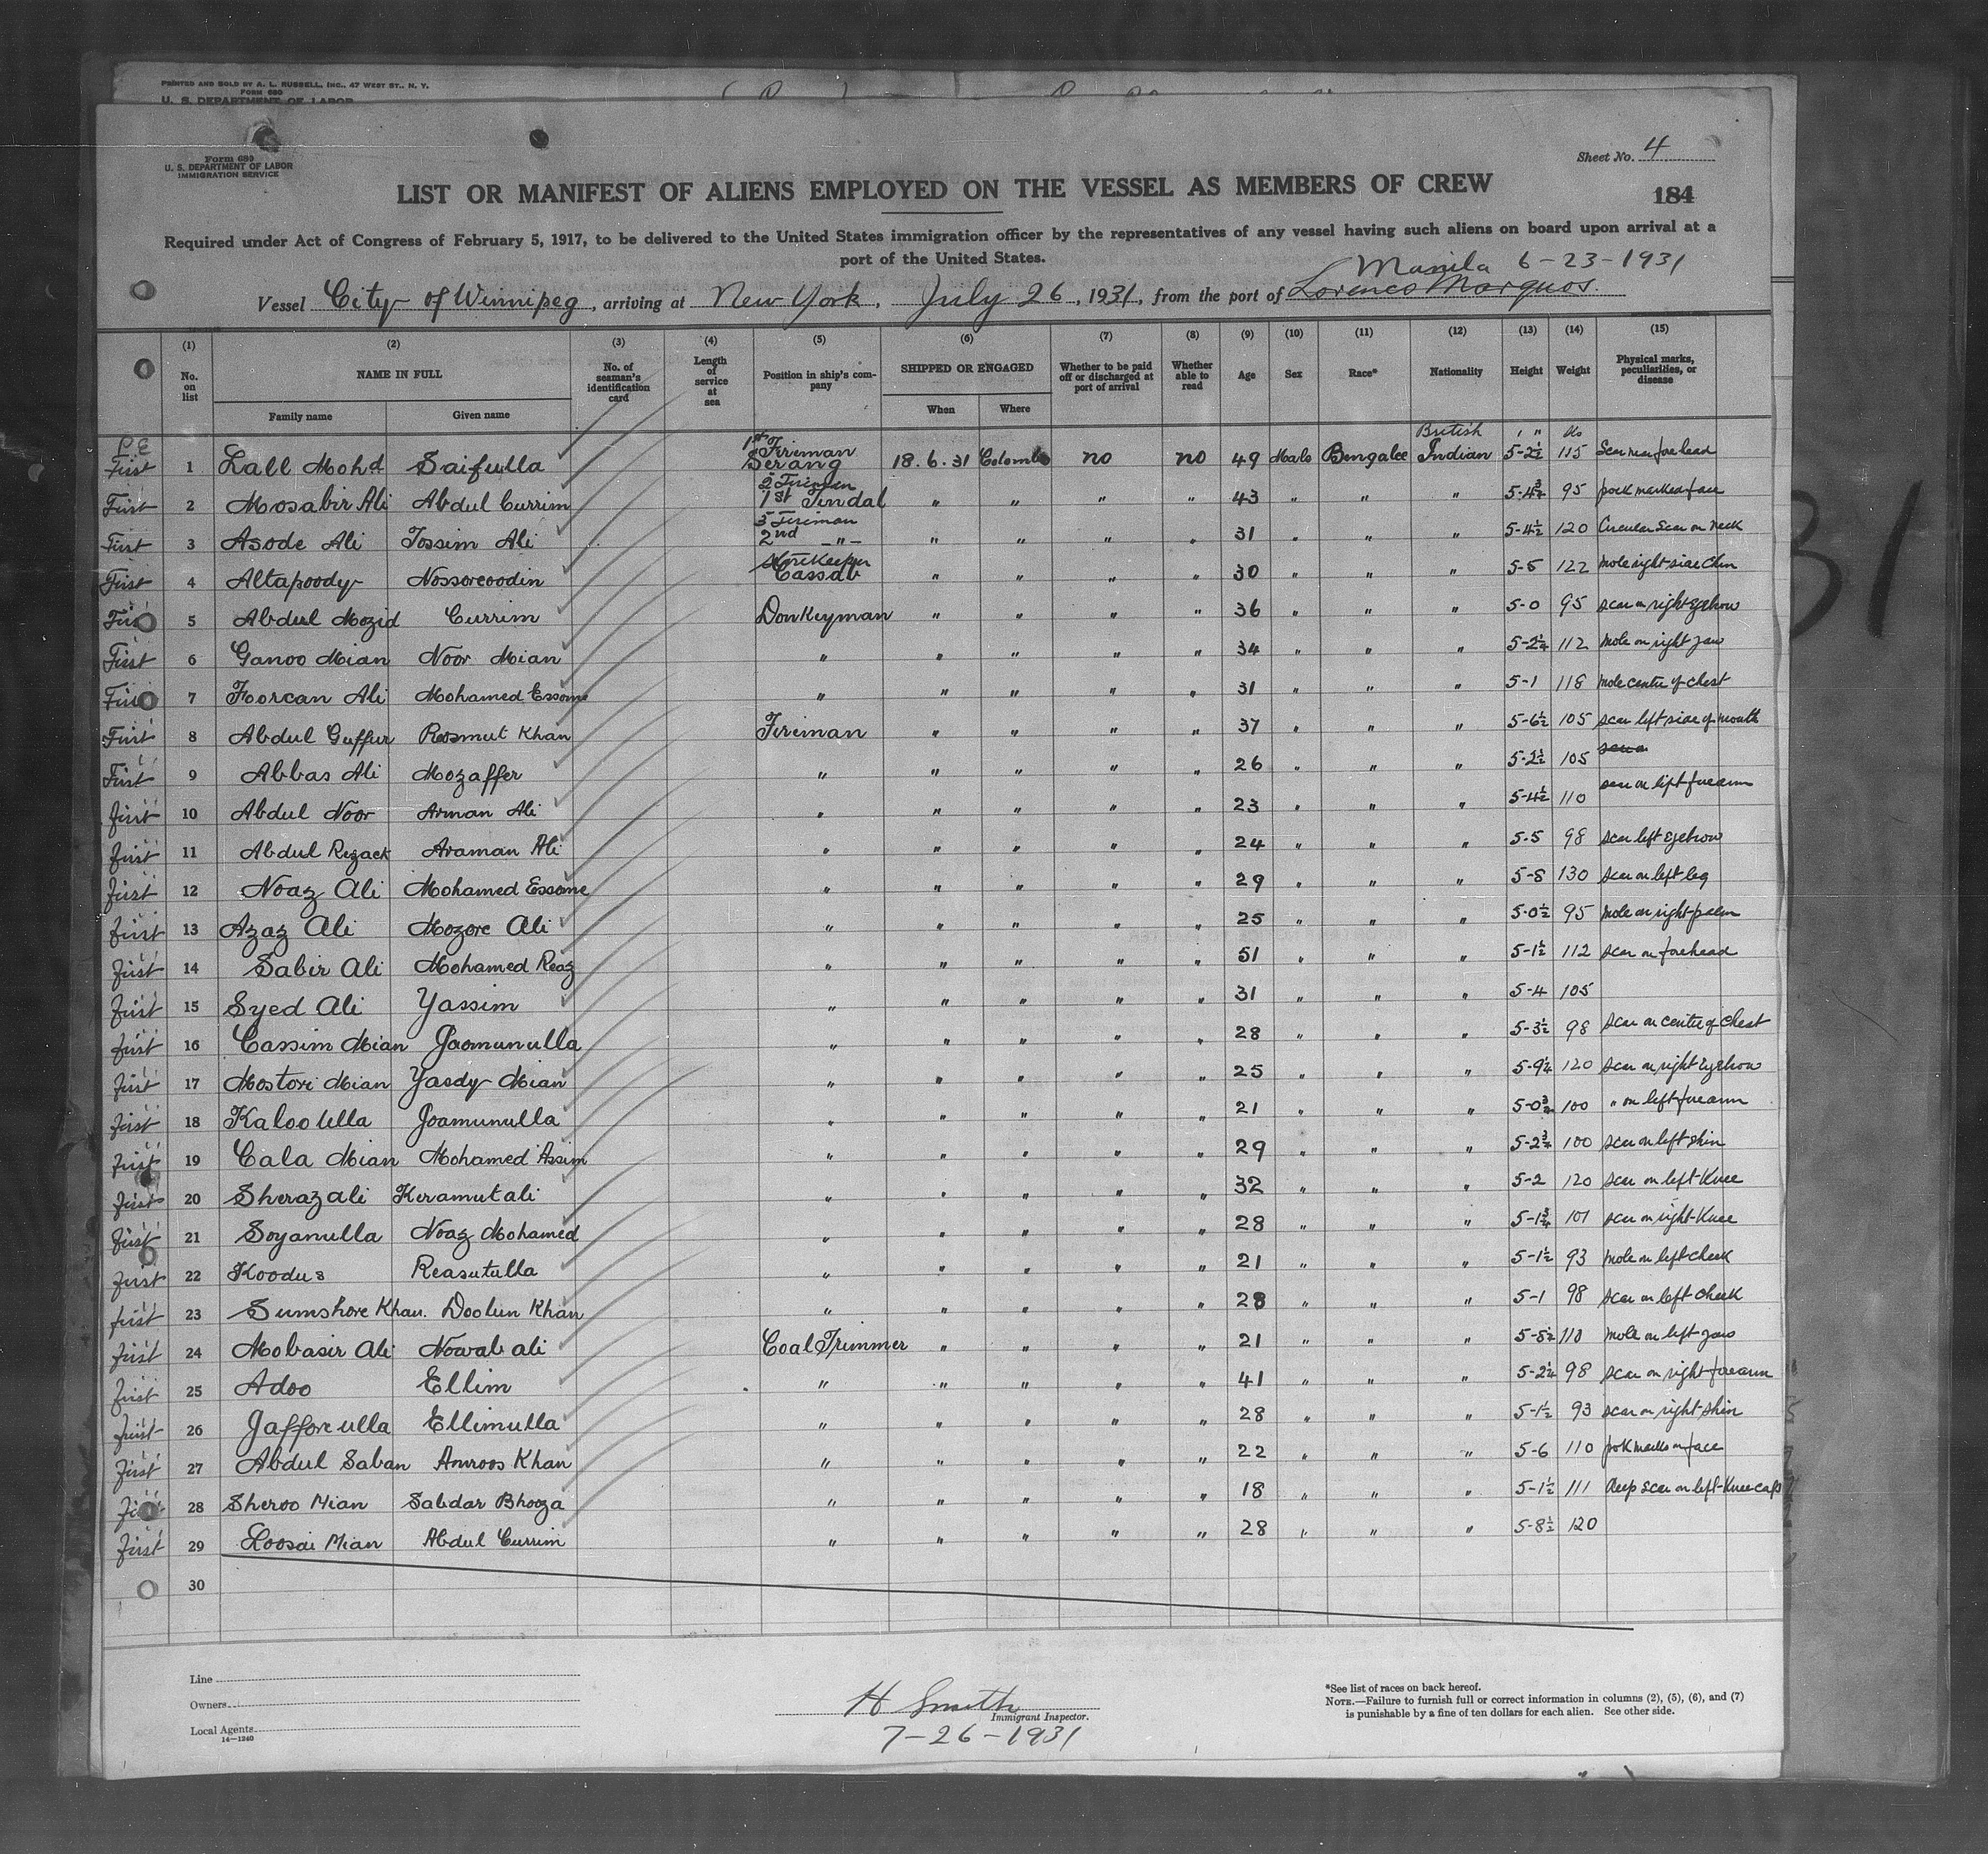 PRINTED AND SOLD BY A. L. RUSSELL, INC., 47 WEST ST., N. Y.
FORM 680
U. S. DEPARTMENT OF LABOR
Form 680
U. S. DEPARTMENT OF LABOR
IMMIGRATION SERVICE
Sheet No. 4
LIST OR MANIFEST OF ALIENS EMPLOYED ON THE VESSEL AS MEMBERS OF CREW
184
Required under Act of Congress of February 5, 1917, to be delivered to the United States immigration officer by the representatives of any vessel having such aliens on board upon arrival at a
port of the United States.
Manila 6-23-1931
Vessel City of Winnipeg, arriving at New York, July 26, 1931, from the port of Lorenco Marquos.
(1) (2) (3) (4) (5) (6) (7) (8) (9) (10) (11) (12) (13) (14) (15)
No. on list NAME IN FULL No. of seaman's identification card Length of service at sea Position in ship's company SHIPPED OR ENGAGED Whether to be paid off or discharged at port of arrival Whether able to read Age Sex Race* Nationality Height Weight Physical marks, peculiarities, or disease
Family name Given name When Where
P.E. 1st Fireman British ' " lbs
First 1 Lall Mohd Saifulla Serang 18.6.31 Colombo no no 49 Male Bengalee Indian 5-2½ 115 Scar near forehead
2 Fireman
First 2 Mosabir Ali Abdul Currim 1st Tindal " " " " 43 " " " 5-4¾ 95 pock marked face
3 Fireman
First 3 Asode Ali Tossim Ali 2nd -"- " " " " 31 " " " 5-4½ 120 Circular scar on neck
Storekeeper
First 4 Altapoody Nossoreoodin Cassab " " " " 30 " " " 5-5 122 mole right side chin
First 5 Abdul Mozid Currim Donkeyman " " " " 36 " " " 5-0 95 scar on right eyebrow
First 6 Ganoo Mian Noor Mian " " " " " 34 " " " 5-2¼ 112 mole on right jaw
First 7 Foorcan Ali Mohamed Essome " " " " " 31 " " " 5-1 118 mole centre of chest
First 8 Abdul Guffur Rosmut Khan Fireman " " " " 37 " " " 5-6½ 105 scar left side of mouth
First 9 Abbas Ali Mozaffer " " " " " 26 " " " 5-2½ 105
First 10 Abdul Noor Arman Ali " " " " " 23 " " " 5-4½ 110 scar on left forearm
First 11 Abdul Rezack Araman Ali " " " " " 24 " " " 5-5 98 scar left eyebrow
First 12 Noaz Ali Mohamed Essome " " " " " 29 " " " 5-8 130 scar on left leg
First 13 Azaz Ali Mozore Ali " " " " " 25 " " " 5-0½ 95 mole on right palm
First 14 Sabir Ali Mohamed Reaz " " " " " 51 " " " 5-1½ 112 scar on forehead
First 15 Syed Ali Yassim " " " " " 31 " " " 5-4 105
First 16 Cassim Mian Joomunulla " " " " " 28 " " " 5-3½ 98 scar on centre of chest
First 17 Mostori Mian Yasdy Mian " " " " " 25 " " " 5-9¼ 120 scar on right eyebrow
First 18 Kaloo Ulla Joamunulla " " " " " 21 " " " 5-0¾ 100 " on left forearm
First 19 Cala Mian Mohamed Assim " " " " " 29 " " " 5-2¾ 100 scar on left shin
First 20 Sherazali Keramutali " " " " " 32 " " " 5-2 120 scar on left knee
First 21 Soyanulla Noaz Mohamed " " " " " 28 " " " 5-1¾ 101 scar on right knee
First 22 Koodus Reasutulla " " " " " 21 " " " 5-1½ 93 mole on left cheek
First 23 Sumshore Khan. Doolun Khan " " " " " 28 " " " 5-1 98 scar on left cheek
First 24 Mobasir Ali Nowab ali Coal Trimmer " " " " 21 " " " 5-5½ 110 mole on left jaw
First 25 Adoo Ellim " " " " " 41 " " " 5-2¼ 98 scar on right forearm
First 26 Jafforeulla Ellimulla " " " " " 28 " " " 5-1½ 93 scar on right shin
First 27 Abdul Saban Amroos Khan " " " " " 22 " " " 5-6 110 pok marks on face
First 28 Sheroo Mian Sabdar Bhooza " " " " " 18 " " " 5-1½ 111 deep scar on left knee cap
First 29 Loosai Mian Abdul Currim " " " " " 28 " " " 5-8½ 120
30
Line
Owners
Local Agents
14-1240
H Smith
Immigrant Inspector.
7-26-1931
*See list of races on back hereof.
NOTE.—Failure to furnish full or correct information in columns (2), (5), (6), and (7)
is punishable by a fine of ten dollars for each alien. See other side.
31